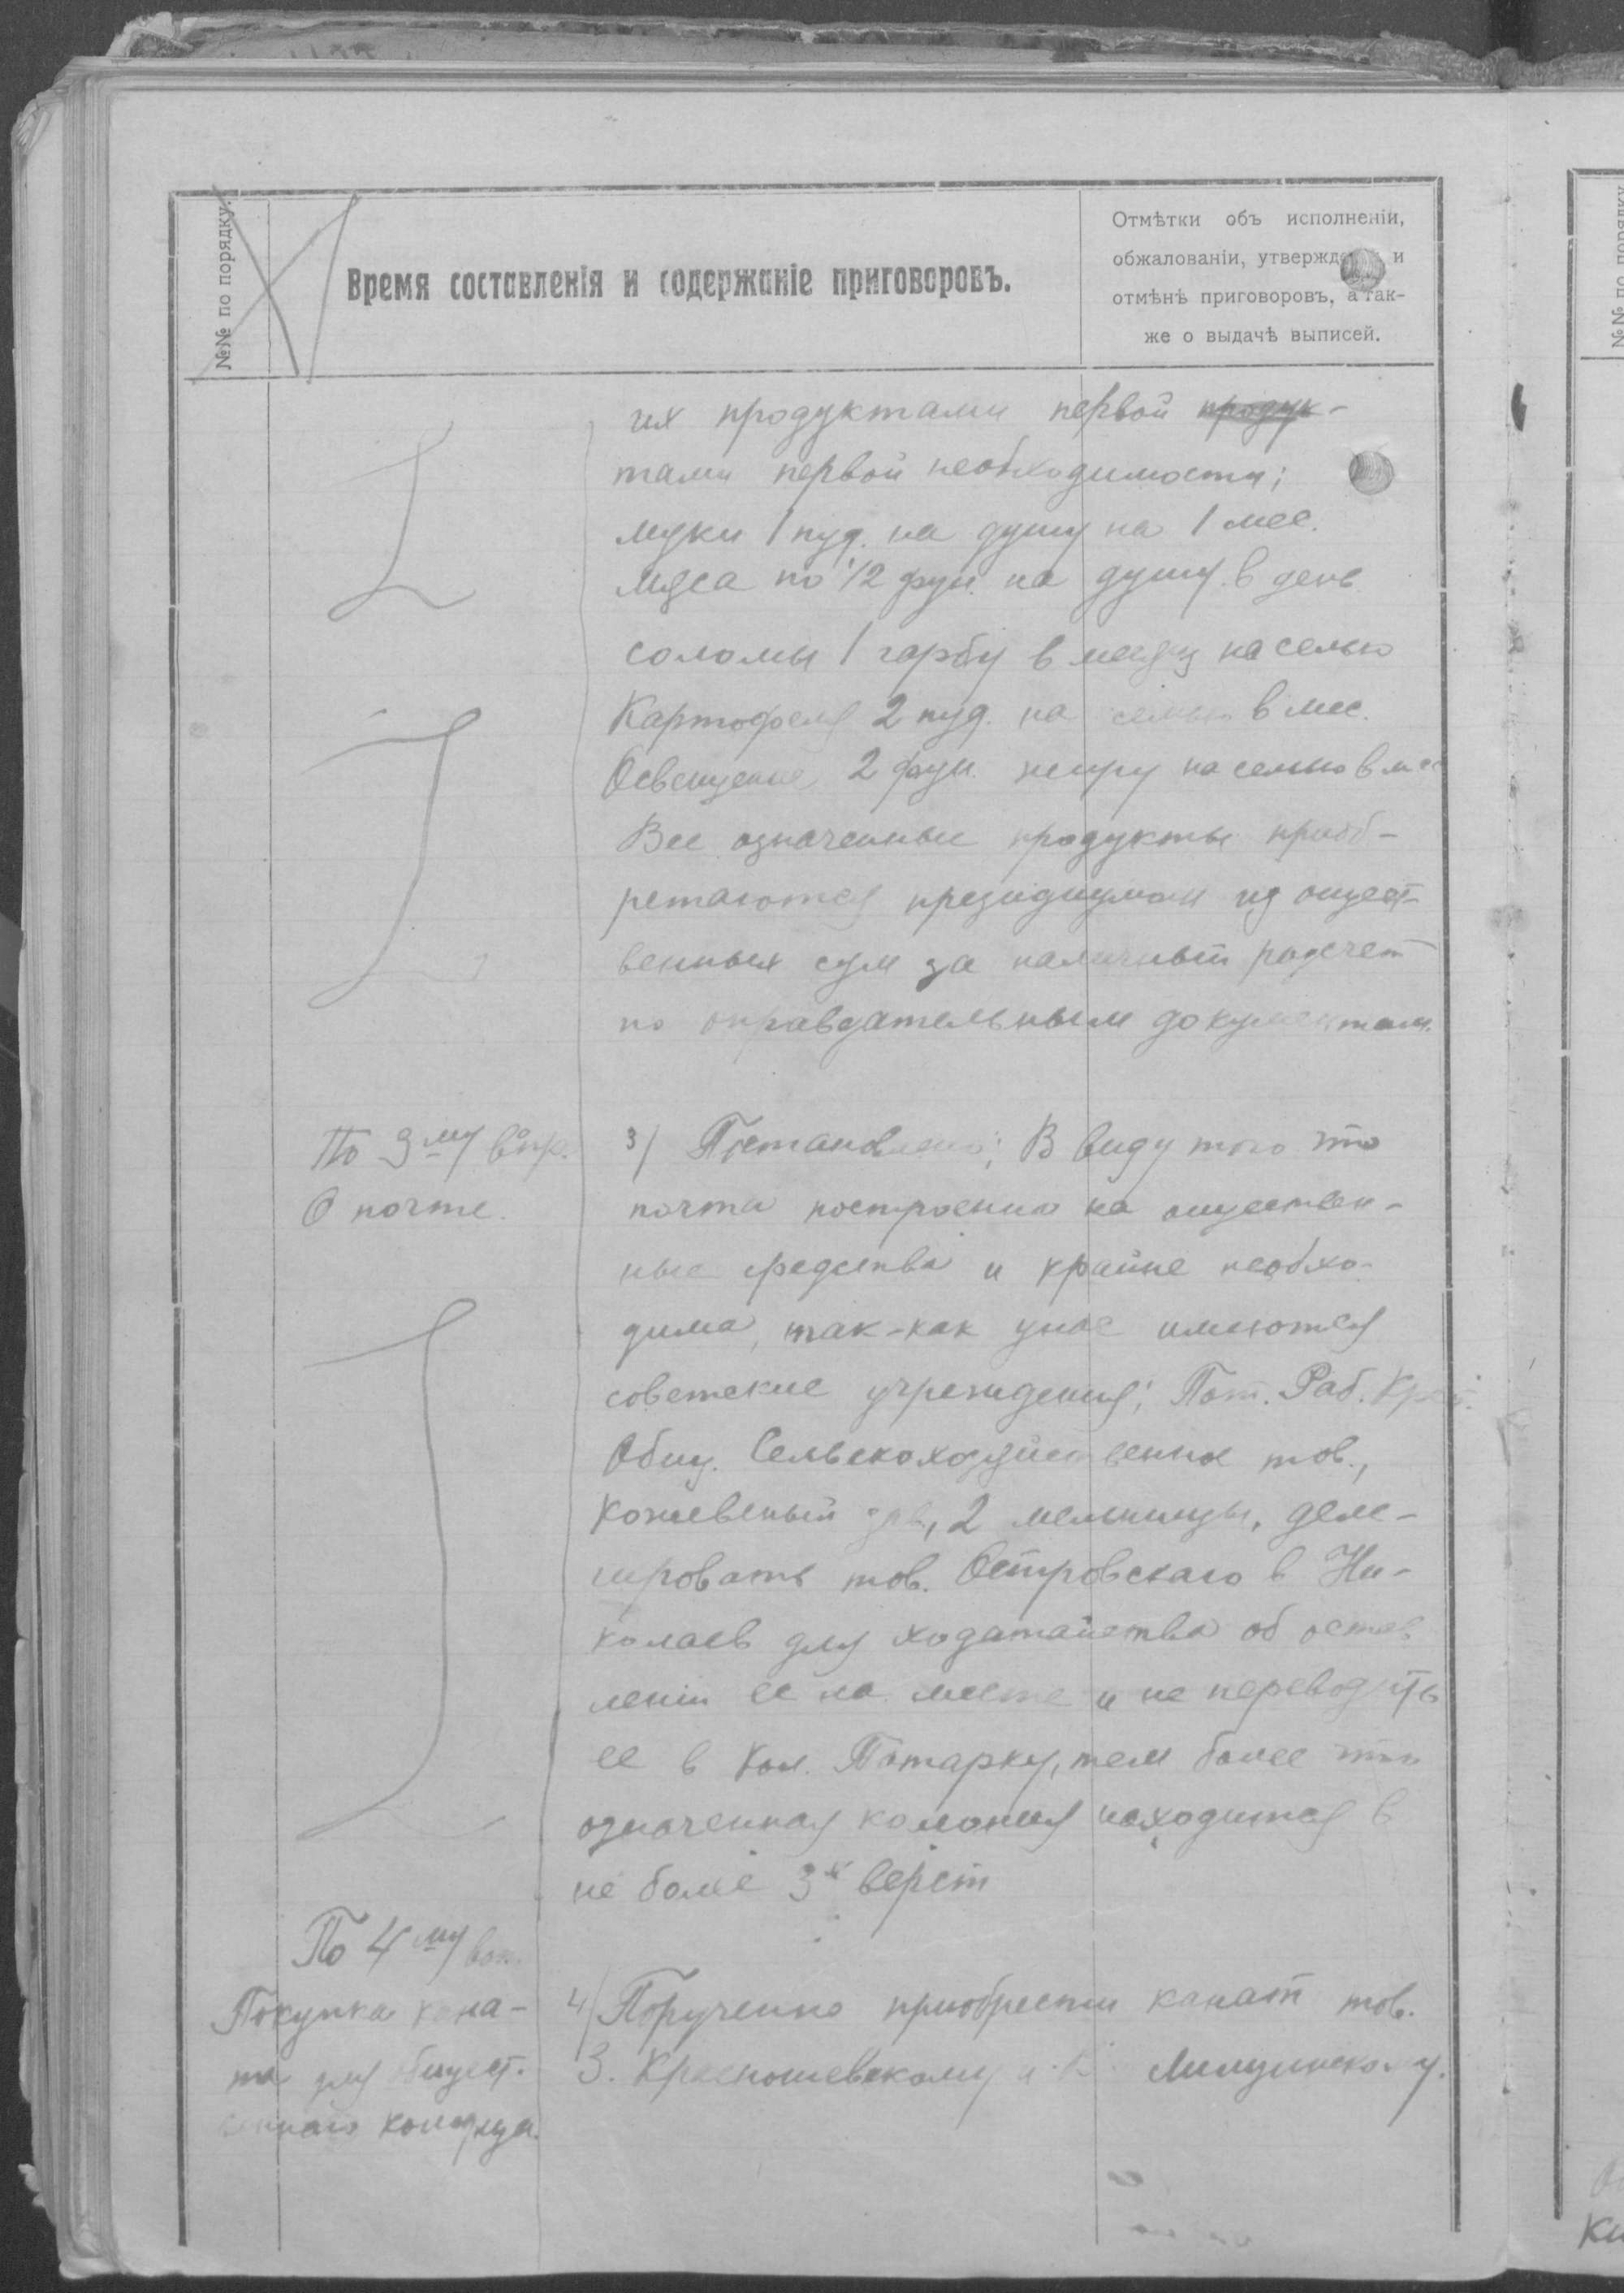 №№ по порядку.
Время составленія и содержаніе приговоровъ.
Отмѣтки объ исполненіи,
обжалованіи, утвержд и
отмѣнѣ приговоровъ, а так-
же о выдачѣ выписей.
их продуктами первой продук-
тами первой необходимости;
муки 1 пуд. на душу на 1 мес.
мяса по 1/2 фун. на душу в день
соломы 1 гарбу в месяц на семью
Картофеля 2 пуд. на семью в мес.
Освещение 2 фун. жиру на семью в мес
Все означенные продукты приоб-
ретаются президиумом из ощест-
венных сум за наличный расчет
по оправдательным документам.
По 3му вопр.
О почте.
3/ Постановлено; В виду того что
почта построенна на ощественн-
ные средства и крайне необхо-
дима, так-как унас имеются
советские учреждения; Пот. Раб. Крест.
Общ. Сельскохозяйственное тов.,
кожевеный зав., 2 мельницы, деле-
гировать тов. Островскаго в Ни-
колаев для ходатайства об остав
лении ее на месте и не переводить
ее в Кол. Потарку, тем более что
означенная колония находится в
не более 3х верст
По 4му воп.
Покупка кана-
та для общест.
еннаго колодца.
4/ Порученно приобрести канат тов.
З. Красношевскому и Милущинскому.